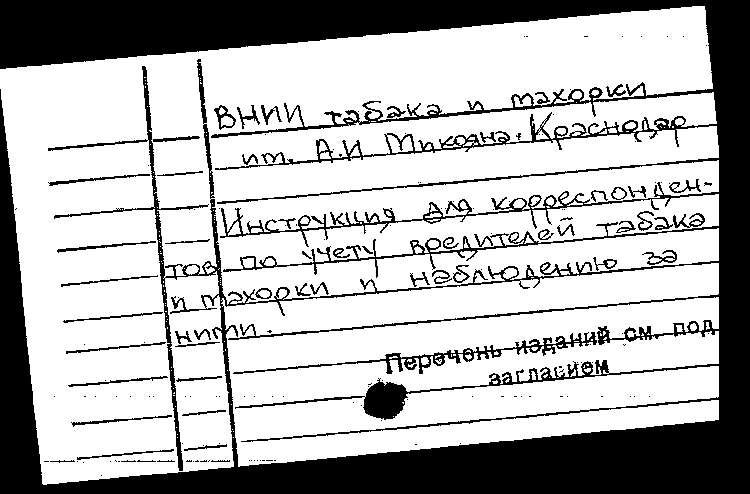 ВНИИ табака и махорки
им. А.И Микояна. Краснодар
Инструкция для корреспонден-
тов по учету вредителей табака
и махорки и наблюдению за
ними.
Перечень изданий см. под
заглавием